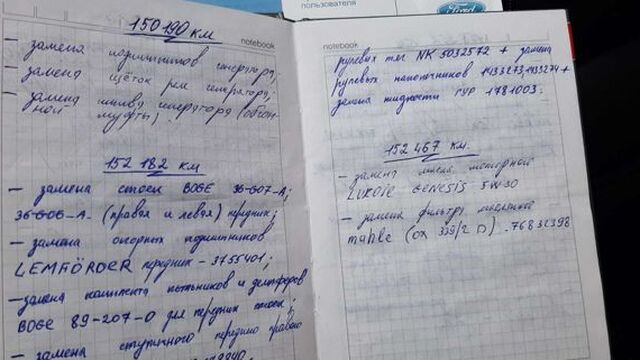 пользователя
Ford
notebook
150190 км
— замена подшипников генератора,
— замена щёток рем генератора,
— замена шкива генератора (обгон-
ной муфты).
152 182 км
— замена стоек BOGE 36-G07-A;
36-G06-A- (правая и левая) передних;
— замена опорных подшипников
LEMFÖRDER передних - 3755401;
— замена комплекта пыльников и демпферов
BOGE 89-207-0 для передних стоек;
— замена ступичного передного правого
notebook
рулевых тяг NK 5032572 + замена
рулевых наконечников 1433273, 1433274 +
замена жидкости ГУР 1781003.
152 467 км.
— замена масла моторной
LUKOIL GENESIS 5W30
— замена фильтра масленого
mahle (OX 339/2 D) . 76832398